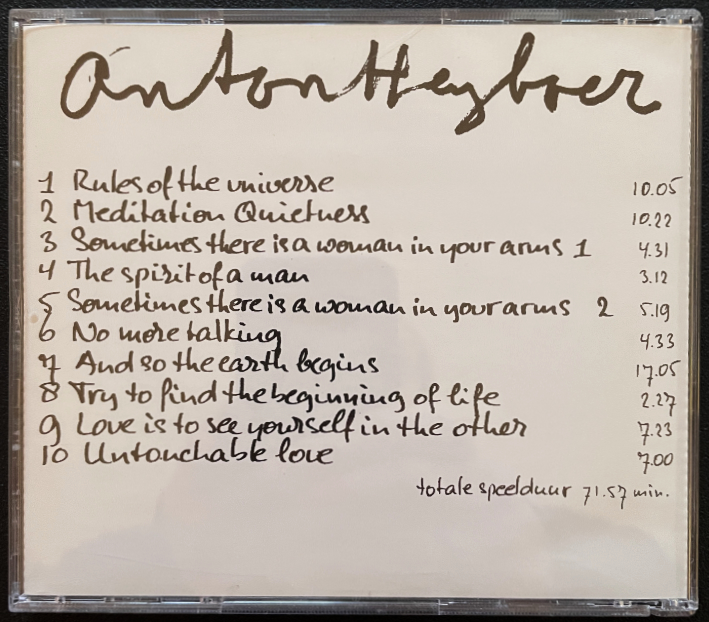 Anton Heyboer
1 Rules of the universe 10.05
2 Meditation Quietness 10.22
3 Sometimes there is a woman in your arms 1 4.31
4 The spirit of a man 3.12
5 Sometimes there is a woman in your arms 2 5.19
6 No more talking 4.33
7 And so the earth begins 17.05
8 Try to find the beginning of life 2.27
9 Love is to see yourself in the other 7.23
10 Untouchable love 7.00
totale speelduur 71.57 min.